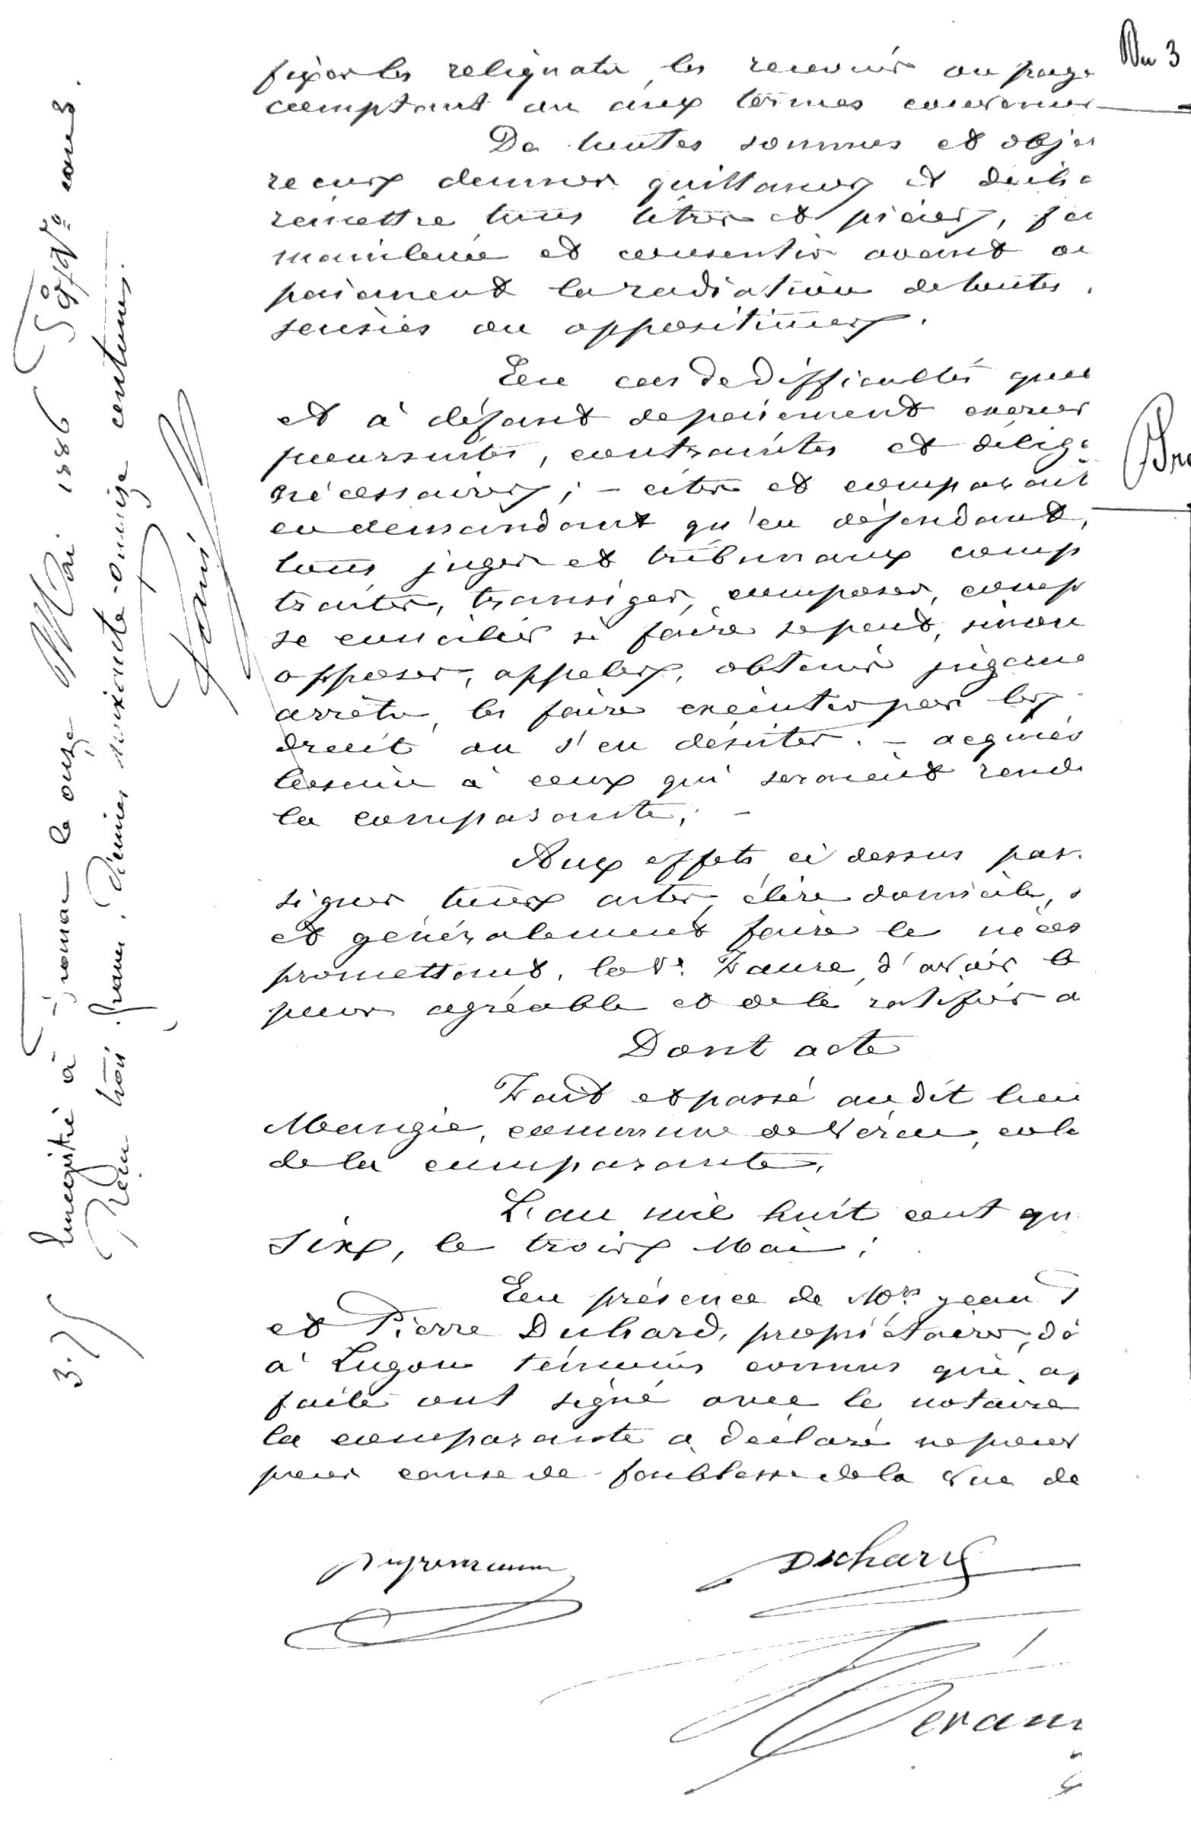 fixer les reliquats, les recevoir ou paye
comptant ou aux termes convenus
De toutes sommes et objets
recus donner quittances et décha
remettre tous titres et pièces, fai
mainlevée et consentir avant ou
paiement la radiation de toutes
saisies ou oppositions.
En cas de difficultés quel
et à défaut de paiement exercer
poursuites, contraintes et dilige
nécessaires; – citer et comparait
en demandant qu'en défendant,
tous juges et tribunaux comp
traiter, transiger, composer, comp
se concilier si faire se peut, sinon
opposer, appeler, obtenir jugeme
arrêts, les faire exécuter par les
droit ou s'en désister. – acquies
besoin à ceux qui seraient rend
la comparante; –
Aux effets ci dessus pas
signer tous actes, élire domicile, s
et généralement faire le néces
promettant, la Ve Faure, d'avoir le
pour agréable et de le ratifier a
Dont acte
Fait et passé au dit lieu
commune de Vérac, en la
de la comparante,
L'an mil huit cent qu
Six, le trois Mai;
En présence de Mrs Jean
et Pierre Duhard, propriétaires, de
à Lugon témoins connus qui, ap
faite ont signé avec le notaire
la comparante a déclaré ne pouv
pour cause de faiblesse de la vue de
Duhard
Du 3
Enregistré à Fronsac le onze Mai 1886
Reçu trois francs, décimes soixante-quinze centimes.
3.75